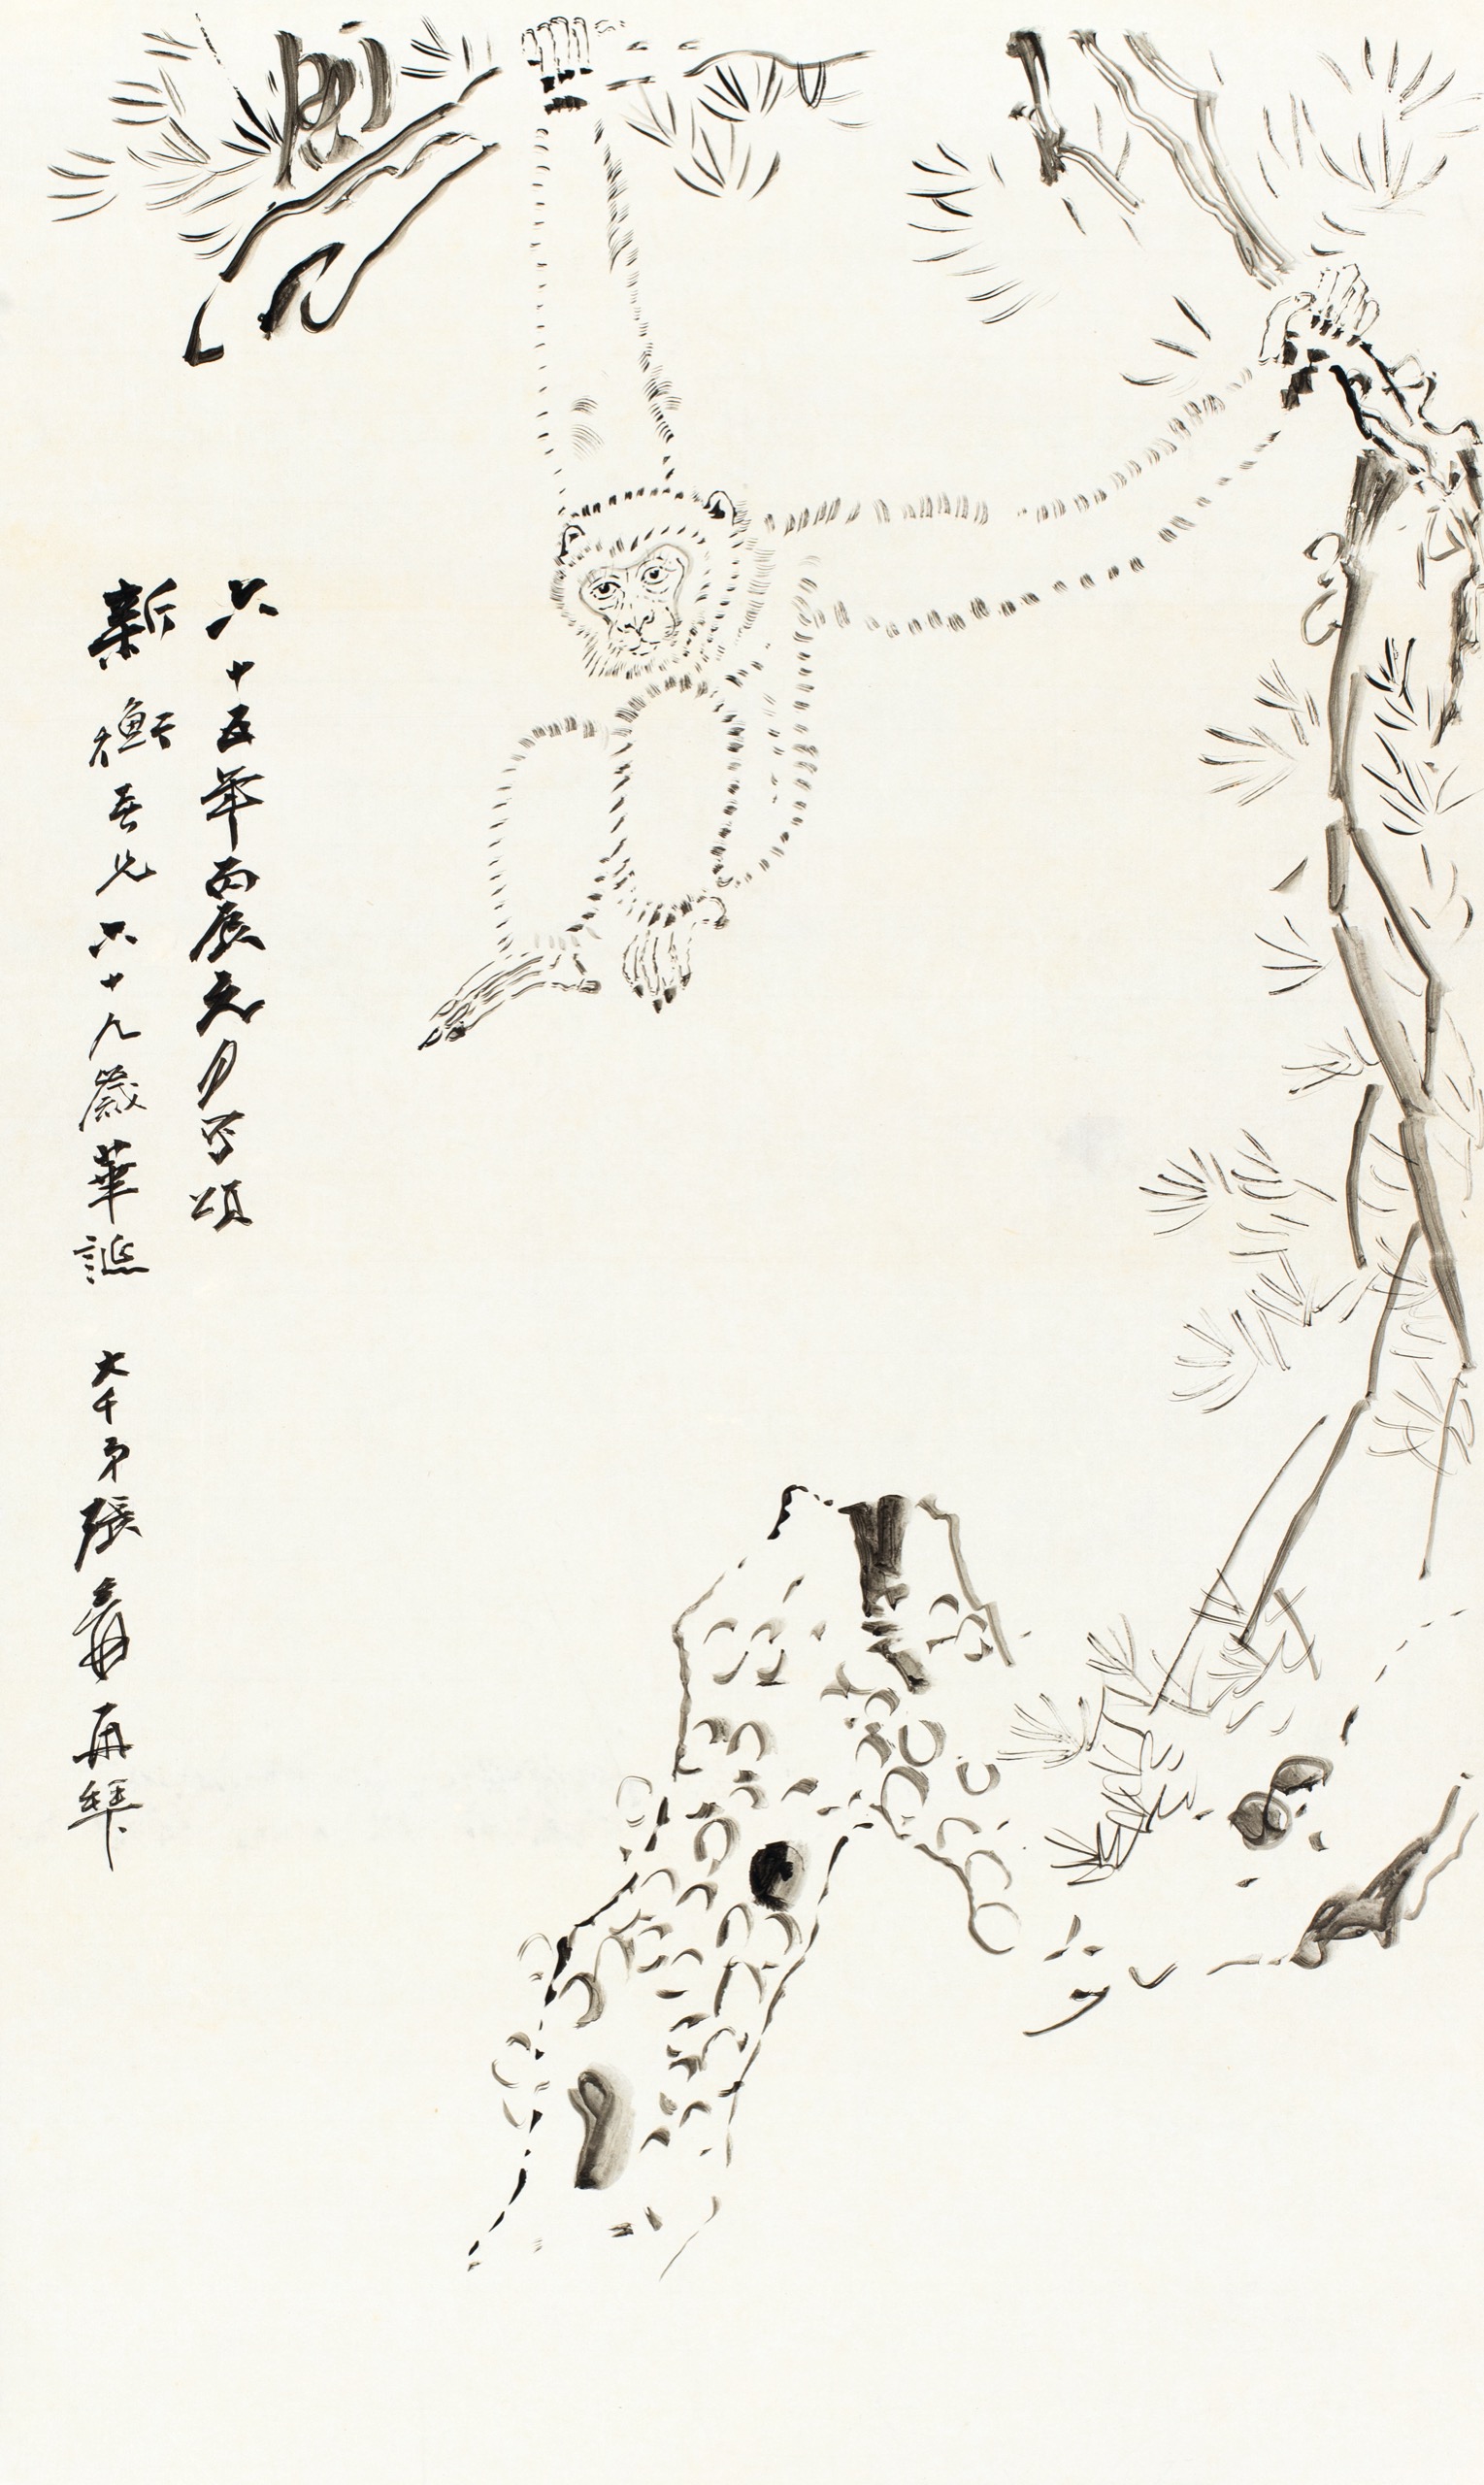 六十五年丙辰元月写頌
新衡吾兄六十九歲華誕 大千弟張爰再拜